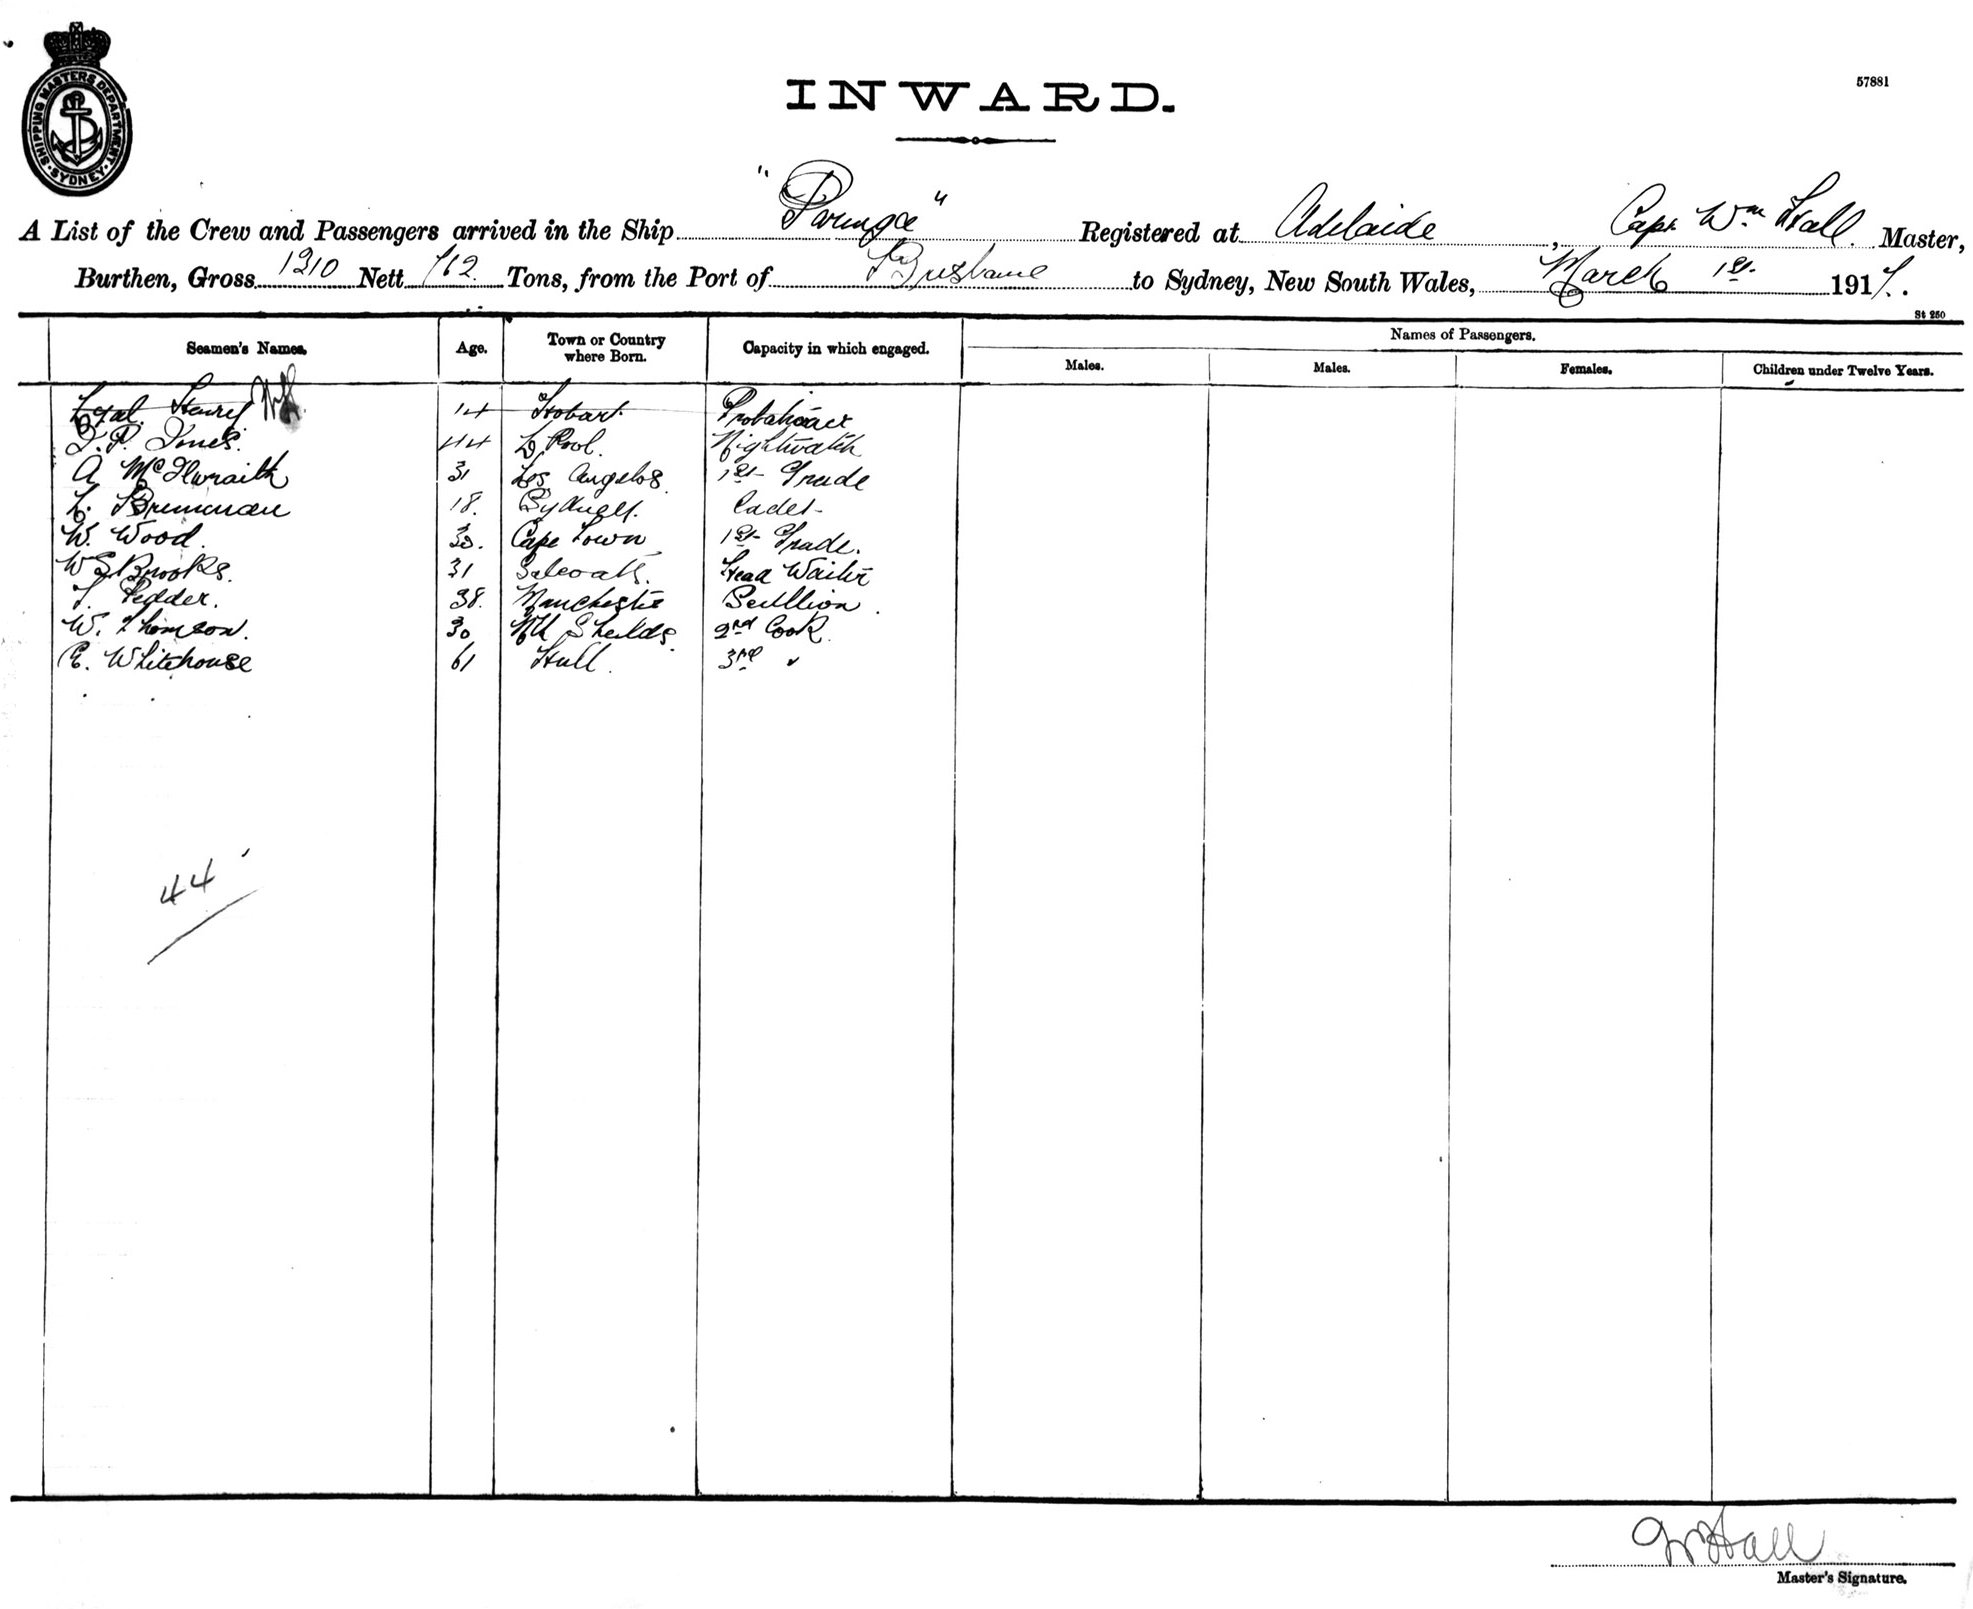 SHIPPING MASTERS DEPARTMENT · SYDNEY ·
57881
INWARD.
A List of the Crew and Passengers arrived in the Ship "Paringa" Registered at Adelaide, Capt Wm Hall. Master,
Burthen, Gross 1310 Nett 762 Tons, from the Port of Brisbane to Sydney, New South Wales, March 1st 1917.
St 250
Seamen's Names. Age. Town or Country where Born. Capacity in which engaged. Names of Passengers.
Males. Males. Females. Children under Twelve Years.
Henry 14 Hobart
Jones. 44 L Pool. Nightwatch
A McIlwraith 31 Los Angelos 1st Grade
L. Brennan 18. Sydney. Cadet
W. Wood. 30. Cape Town 1st Grade.
Brooks. 31 Head Waiter
Pedder. 38. Manchester Scullion.
W. Thomson. 30 Nth Shields. 2nd Cook.
E. Whitehouse 61 Hull. 3rd "
44
W Hall
Master's Signature.